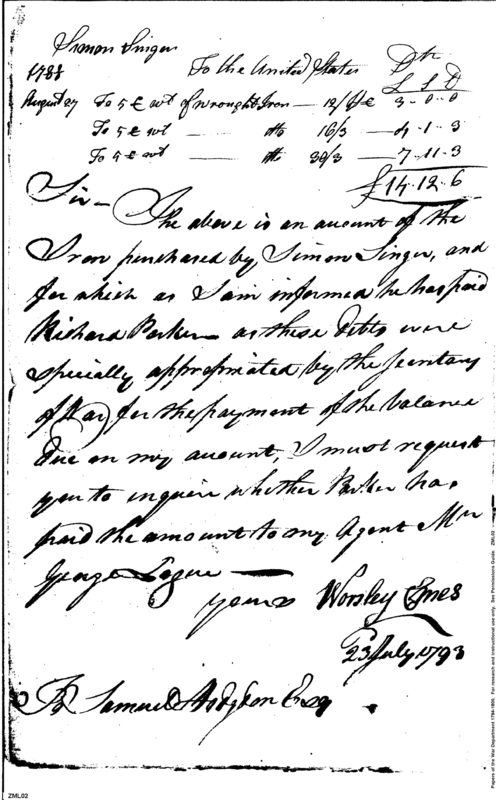 Simon Singer
To the United States Dr
1788 L S D
August 27 To 5 C wt of Wrought Iron — 12/ C 3 - 0 - 0
To 5 C wt — do 16/3 — 4 - 1 - 3
To 5 C wt — do 30/3 — 7 - 11 - 3
£ 14 - 12 - 6
Sir —
The above is an account of the
Iron purchased by Simon Singer, and
for which as I am informed he has paid
Richard Parker — as these debts were
specially appropriated by the Secretary
of War for the payment of the balance
due on my account, I must request
you to inquire whether Parker has
paid the amount to my Agent Mr
George
yours Worsley Emes
23 July 1793
Samuel Hodgdon Esq
Papers of the War Department 1784-1800. For research and instructional use only. See Permissions Guide. ZML02
ZML02